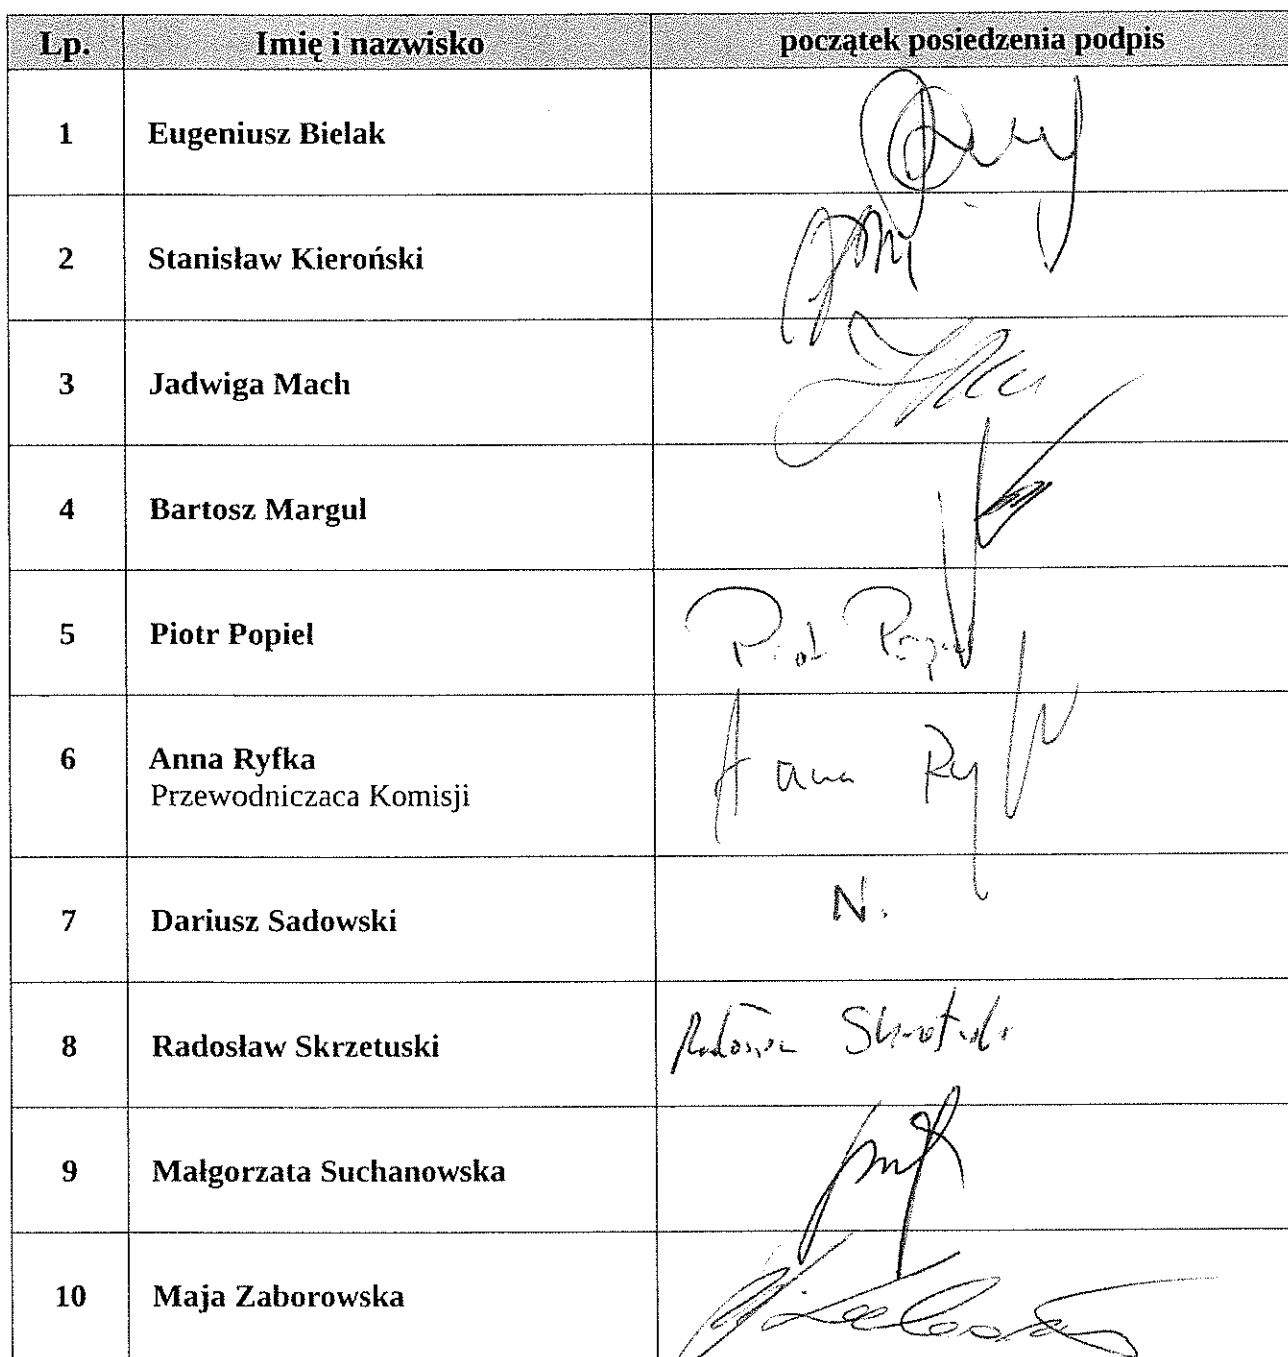 Lp. Imię i nazwisko początek posiedzenia podpis
1 Eugeniusz Bielak
2 Stanisław Kieroński
3 Jadwiga Mach
4 Bartosz Margul
5 Piotr Popiel Piotr Popiel
6 Anna Ryfka Anna Ryf
Przewodniczaca Komisji
7 Dariusz Sadowski N.
8 Radosław Skrzetuski Radosław Skrzetuski
9 Małgorzata Suchanowska
10 Maja Zaborowska